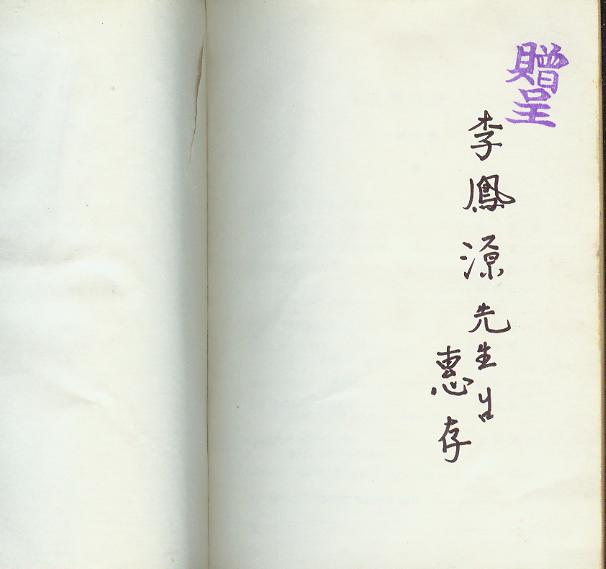 贈呈
李鳳源先生
惠存